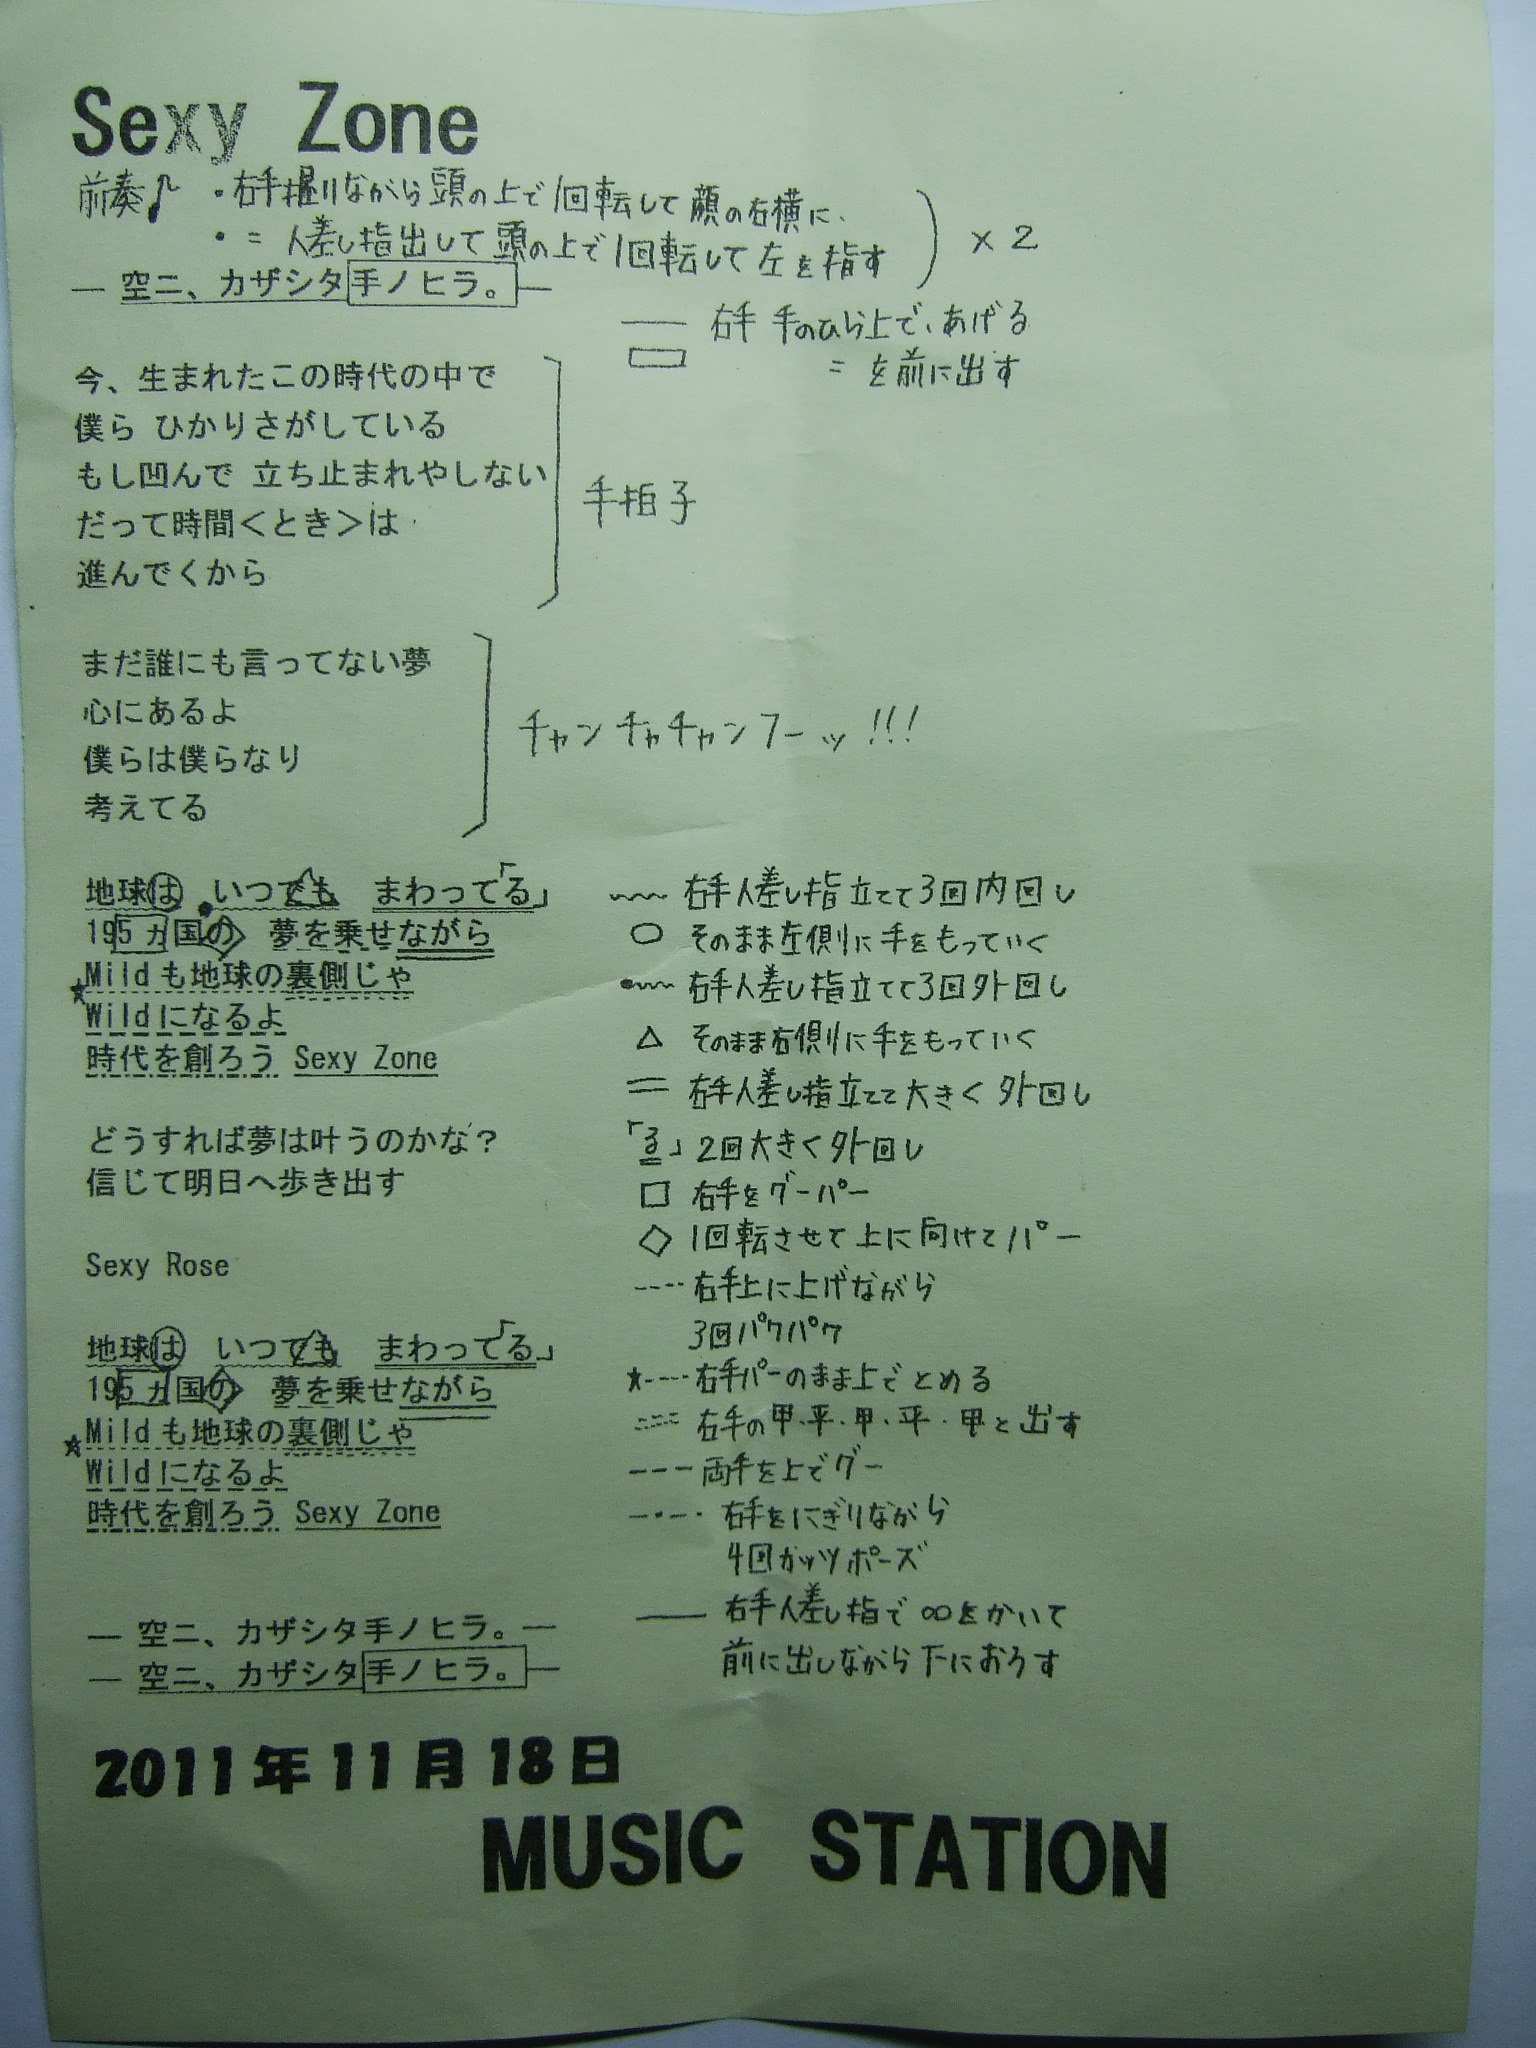 Sexy Zone
前奏♪ ・右手握りながら頭の上で1回転して顔の右横に、
・〃 人差し指出して頭の上で1回転して左を指す ) ×2
― 空ニ、カザシタ手ノヒラ。―
― 右手 手のひら上で、あげる
▭ 〃 を前に出す
今、生まれたこの時代の中で
僕ら ひかりさがしている
もし凹んで 立ち止まれやしない
だって時間<とき>は
進んでくから
手拍子
まだ誰にも言ってない夢
心にあるよ
僕らは僕らなり
考えてる
チャンチャチャンフーッ!!!
地球は いつでも まわって「る」
195ヵ国の 夢を乗せながら
Mildも地球の裏側じゃ
Wildになるよ
時代を創ろう Sexy Zone
どうすれば夢は叶うのかな?
信じて明日へ歩き出す
Sexy Rose
地球は いつでも まわって«る」
195ヵ国の 夢を乗せながら
★Mildも地球の裏側じゃ
Wildになるよ
時代を創ろう Sexy Zone
― 空ニ、カザシタ手ノヒラ。―
― 空ニ、カザシタ手ノヒラ。―
〜〜 右手人差し指立てて3回内回し
○ そのまま左側に手をもっていく
●〜〜 右手人差し指立てて3回外回し
△ そのまま右側に手をもっていく
＝ 右手人差し指立てて大きく外回し
「る」2回大きく外回し
□ 右手をグーパー
◇ 1回転させて上に向けてパー
---- 右手上に上げながら
3回パクパク
★---- 右手パーのまま上でとめる
=== 右手の甲・平・甲・平・甲と出す
--- 両手を上でグー
-・-・ 右手をにぎりながら
4回ガッツポーズ
― 右手人差し指で∞をかいて
前に出しながら下におろす
2011年11月18日
MUSIC STATION